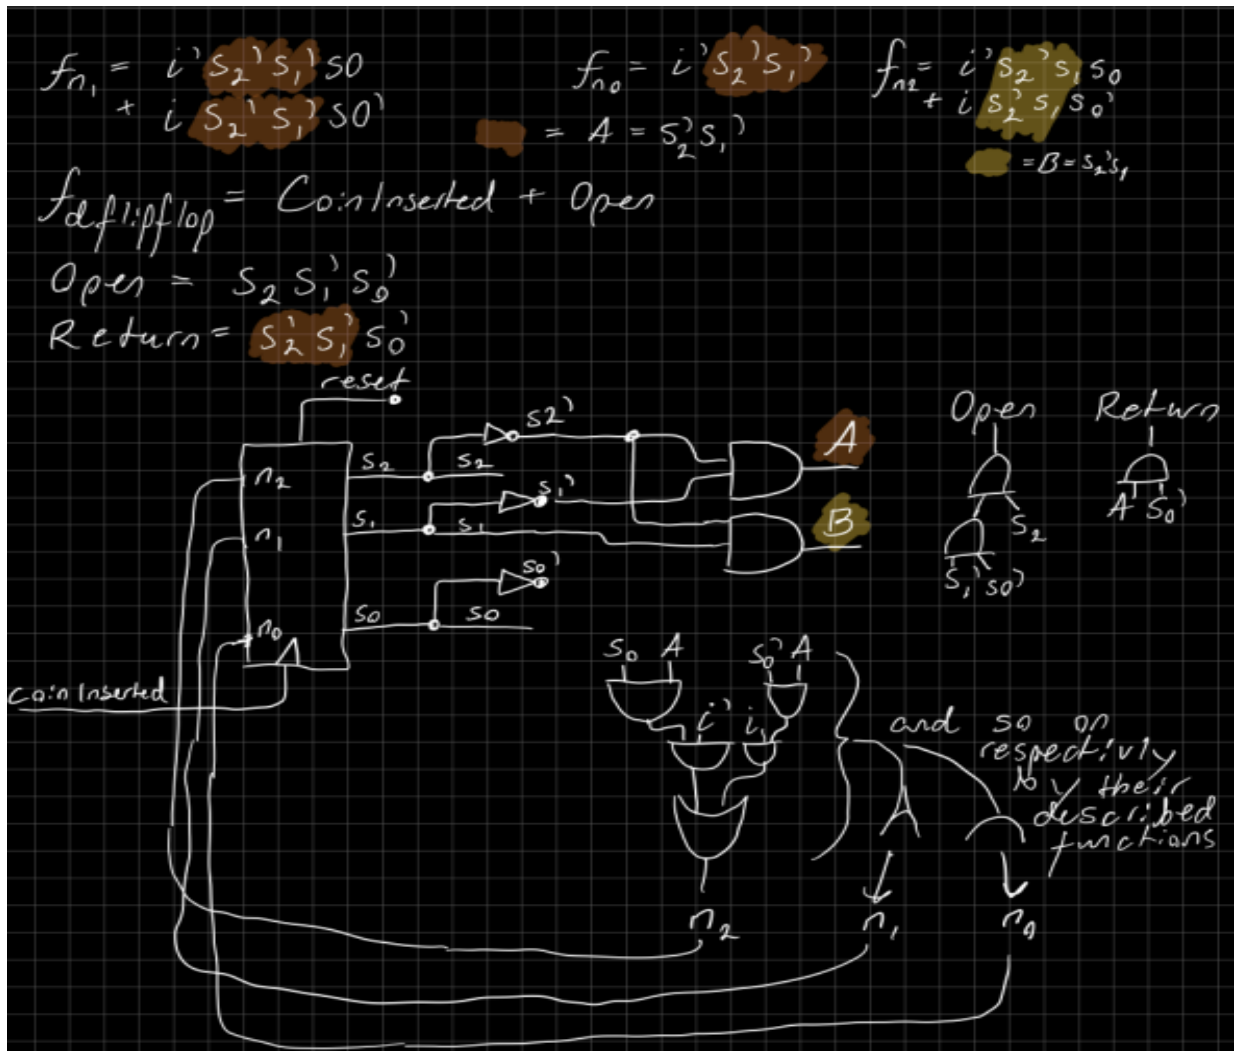 fn₁ = i's₂'s₁'s0
+ i s₂'s₁'s0'
fn₀ = i's₂'s₁'
= A = s₂'s₁'
fn₂ = i's₂'s₁s₀
+ i s₂'s₁s₀'
= B = s₂'s₁
fdflipflop = CoinInserted + Open
Open = s₂s₁'s₀'
Return = s₂'s₁'s₀'
reset
n₂
n₁
n₀
s₂
s2'
s₂
s₁
s₁'
s₁
s0
s0'
s0
A
B
Open
s₂
s₁' s0'
Return
A s₀'
Coin Inserted
s₀ A
s₀' A
i' i
and so on
respectivly
by their
described
functions
n₂
n₁
n₀